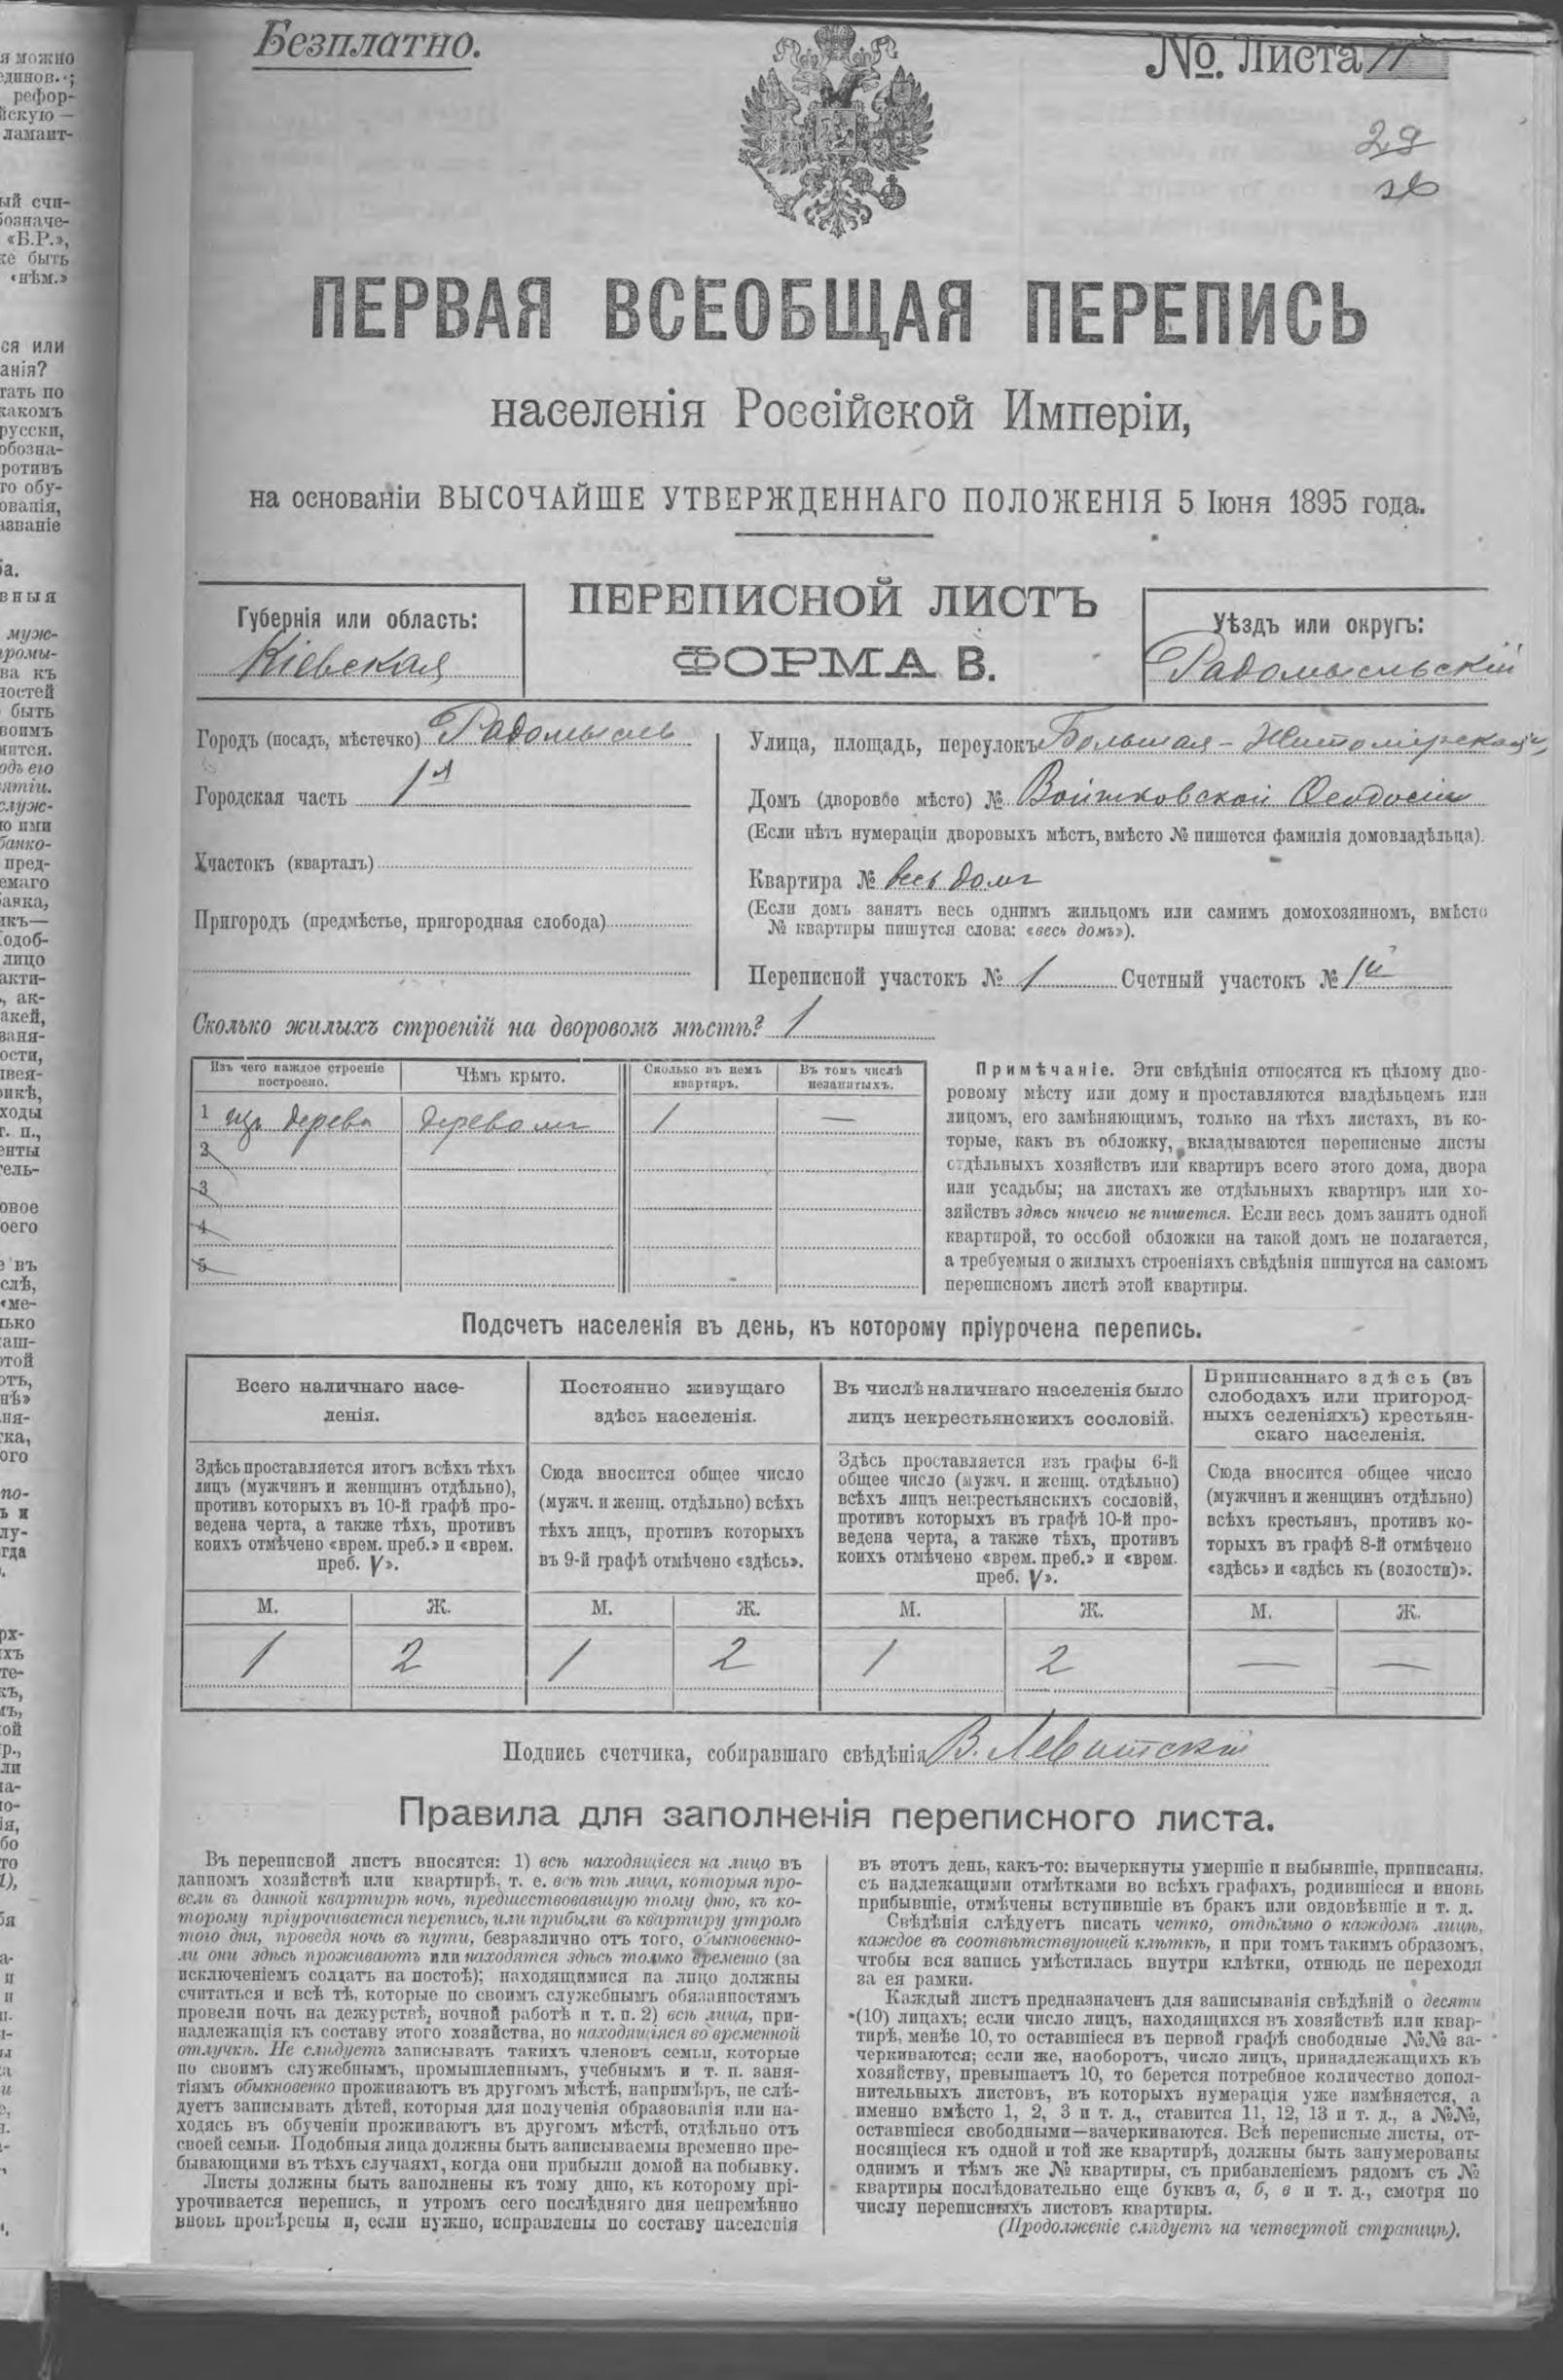 Безплатно.
№. Листа 11
29
36
ПЕРВАЯ ВСЕОБЩАЯ ПЕРЕПИСЬ
населенія Россійской Имперіи,
на основаніи ВЫСОЧАЙШЕ УТВЕРЖДЕННАГО ПОЛОЖЕНІЯ 5 Іюня 1895 года.
Губернія или область:
Кіевская
ПЕРЕПИСНОЙ ЛИСТЪ
ФОРМА В.
Уѣздъ или округъ:
Радомысльскій
Городъ (посадъ, мѣстечко) Радомысль
Городская часть 1я
Участокъ (кварталъ)
Пригородъ (предмѣстье, пригородная слобода)
Улица, площадь, переулокъ Большая-Житомірская
Домъ (дворовое мѣсто) № Войтковской Феодосіи
(Если нѣтъ нумераціи дворовыхъ мѣстъ, вмѣсто № пишется фамилія домовладѣльца).
Квартира № весь домъ
(Если домъ занятъ весь однимъ жильцомъ или самимъ домохозяиномъ, вмѣсто
№ квартиры пишутся слова: «весь домъ»).
Переписной участокъ № 1 Счетный участокъ № 1й
Сколько жилыхъ строеній на дворовомъ мѣстѣ? 1
Изъ чего каждое строеніе построено.
Чѣмъ крыто.
Сколько въ немъ квартиръ.
Въ томъ числѣ незанятыхъ.
1 изъ дерева деревомъ 1 —
2
3
4
5
Примѣчаніе. Эти свѣдѣнія относятся къ цѣлому дво-
ровому мѣсту или дому и проставляются владѣльцемъ или
лицомъ, его замѣняющимъ, только на тѣхъ листахъ, въ ко-
торые, какъ въ обложку, вкладываются переписные листы
отдѣльныхъ хозяйствъ или квартиръ всего этого дома, двора
или усадьбы; на листахъ же отдѣльныхъ квартиръ или хо-
зяйствъ здѣсь ничего не пишется. Если весь домъ занятъ одной
квартирой, то особой обложки на такой домъ не полагается,
а требуемыя о жилыхъ строеніяхъ свѣдѣнія пишутся на самомъ
переписномъ листѣ этой квартиры.
Подсчетъ населенія въ день, къ которому пріурочена перепись.
Всего наличнаго насе-
ленія.
Здѣсь проставляется итогъ всѣхъ тѣхъ
лицъ (мужчинъ и женщинъ отдѣльно),
противъ которыхъ въ 10-й графѣ про-
ведена черта, а также тѣхъ, противъ
коихъ отмѣчено «врем. преб.» и «врем.
преб. V».
Постоянно живущаго
здѣсь населенія.
Сюда вносится общее число
(мужч. и женщ. отдѣльно) всѣхъ
тѣхъ лицъ, противъ которыхъ
въ 9-й графѣ отмѣчено «здѣсь».
Въ числѣ наличнаго населенія было
лицъ некрестьянскихъ сословій.
Здѣсь проставляется изъ графы 6-й
общее число (мужч. и женщ. отдѣльно)
всѣхъ лицъ некрестьянскихъ сословій,
противъ которыхъ въ графѣ 10-й про-
ведена черта, а также тѣхъ, противъ
коихъ отмѣчено «врем. преб.» и «врем.
преб. V».
Приписаннаго здѣсь (въ
слободахъ или пригород-
ныхъ селеніяхъ) крестьян-
скаго населенія.
Сюда вносится общее число
(мужчинъ и женщинъ отдѣльно)
всѣхъ крестьянъ, противъ ко-
торыхъ въ графѣ 8-й отмѣчено
«здѣсь» и «здѣсь къ (волости)».
М. Ж. М. Ж. М. Ж. М. Ж.
1 2 1 2 1 2 — —
Подпись счетчика, собиравшаго свѣдѣнія В. Левитскій
Правила для заполненія переписного листа.
Въ переписной листъ вносятся: 1) всѣ находящіеся на лицо въ
данномъ хозяйствѣ или квартирѣ, т. е. всѣ тѣ лица, которыя про-
вели въ данной квартирѣ ночь, предшествовавшую тому дню, къ ко-
торому пріурочивается перепись, или прибыли въ квартиру утромъ
того дня, проведя ночь въ пути, безразлично отъ того, обыкновенно-
ли они здѣсь проживаютъ или находятся здѣсь только временно (за
исключеніемъ солдатъ на постоѣ); находящимися на лицо должны
считаться и всѣ тѣ, которые по своимъ служебнымъ обязанностямъ
провели ночь на дежурствѣ, ночной работѣ и т. п. 2) всѣ лица, при-
надлежащія къ составу этого хозяйства, но находящіяся во временной
отлучкѣ. Не слѣдуетъ записывать такихъ членовъ семьи, которые
по своимъ служебнымъ, промышленнымъ, учебнымъ и т. п. заня-
тіямъ обыкновенно проживаютъ въ другомъ мѣстѣ, напримѣръ, не слѣ-
дуетъ записывать дѣтей, которыя для полученія образованія или на-
ходясь въ обученіи проживаютъ въ другомъ мѣстѣ, отдѣльно отъ
своей семьи. Подобныя лица должны быть записываемы временно пре-
бывающими въ тѣхъ случаяхъ, когда они прибыли домой на побывку.
Листы должны быть заполнены къ тому дню, къ которому прі-
урочивается перепись, и утромъ сего послѣдняго дня непремѣнно
вновь провѣрены и, если нужно, исправлены по составу населенія
въ этотъ день, какъ-то: вычеркнуты умершіе и выбывшіе, приписаны,
съ надлежащими отмѣтками во всѣхъ графахъ, родившіеся и вновь
прибывшіе, отмѣчены вступившіе въ бракъ или овдовѣвшіе и т. д.
Свѣдѣнія слѣдуетъ писать четко, отдѣльно о каждомъ лицѣ,
каждое въ соотвѣтствующей клѣткѣ, и при томъ такимъ образомъ,
чтобы вся запись умѣстилась внутри клѣтки, отнюдь не переходя
за ея рамки.
Каждый листъ предназначенъ для записыванія свѣдѣній о десяти
(10) лицахъ; если число лицъ, находящихся въ хозяйствѣ или квар-
тирѣ, менѣе 10, то оставшіеся въ первой графѣ свободные №№ за-
черкиваются; если же, наоборотъ, число лицъ, принадлежащихъ къ
хозяйству, превышаетъ 10, то берется потребное количество допол-
нительныхъ листовъ, въ которыхъ нумерація уже измѣняется, а
именно вмѣсто 1, 2, 3 и т. д., ставится 11, 12, 13 и т. д., а №№,
оставшіеся свободными—зачеркиваются. Всѣ переписные листы, от-
носящіеся къ одной и той же квартирѣ, должны быть занумерованы
однимъ и тѣмъ же № квартиры, съ прибавленіемъ рядомъ съ №
квартиры послѣдовательно еще буквъ а, б, в и т. д., смотря по
числу переписныхъ листовъ квартиры.
(Продолженіе слѣдуетъ на четвертой страницѣ).